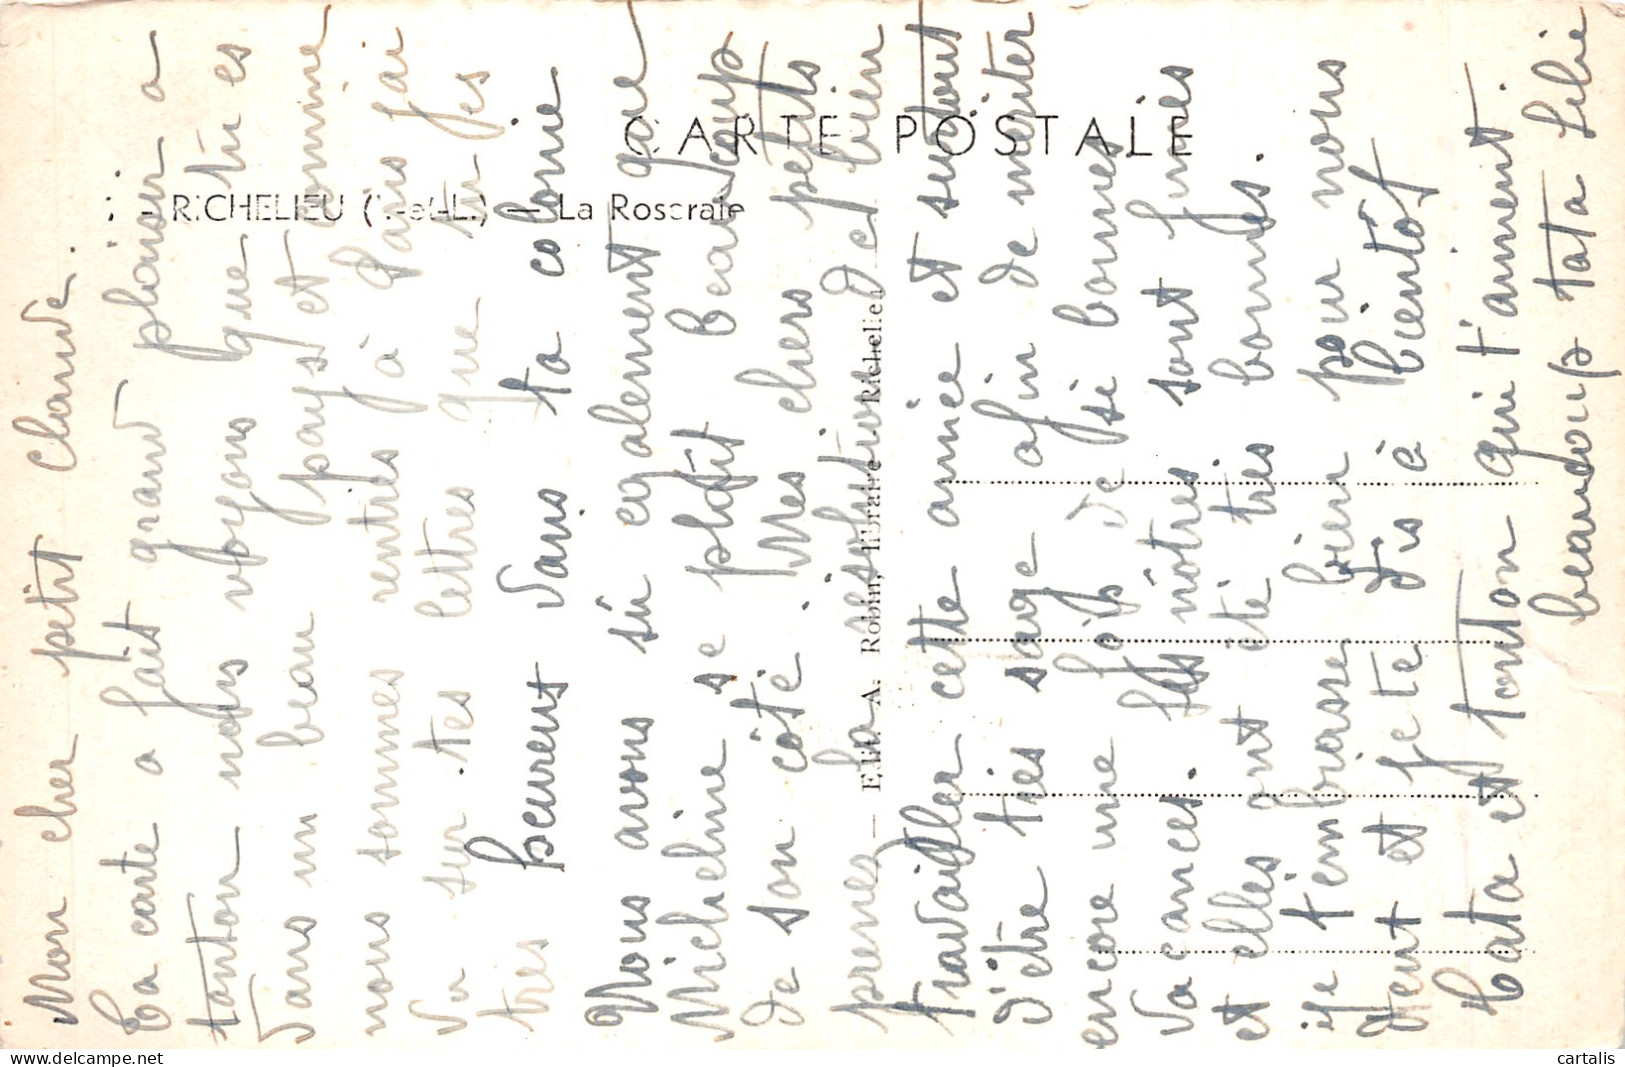 CARTE POSTALE
RICHELIEU (I.-et-L.) — La Roseraie
Edit. A. Robin, libraire - Richelieu
Mon cher petit Claude.
Ta carte a fait grand plaisir a
tonton nous voyons que tu es
dans un beau pays et comme
nous sommes rentrés à Paris j'ai
vu sur tes lettres que tu es
très heureux dans ta colonie
Nous avons sû egalement que
Micheline se plait beaucoup
de son côté. Mes chers petits
prenez la résolution de bien
travailler cette année et surtout
d'être très sage afin de mériter
encore une fois de si bonnes
vacances. les nôtres sont finies
et elles ont été très bonnes.
je t'embrasse bien pour nous
deux et je te dis à bientôt
Tata et Tonton qui t'aiment.
beaucoup tata Lilie
cartalis